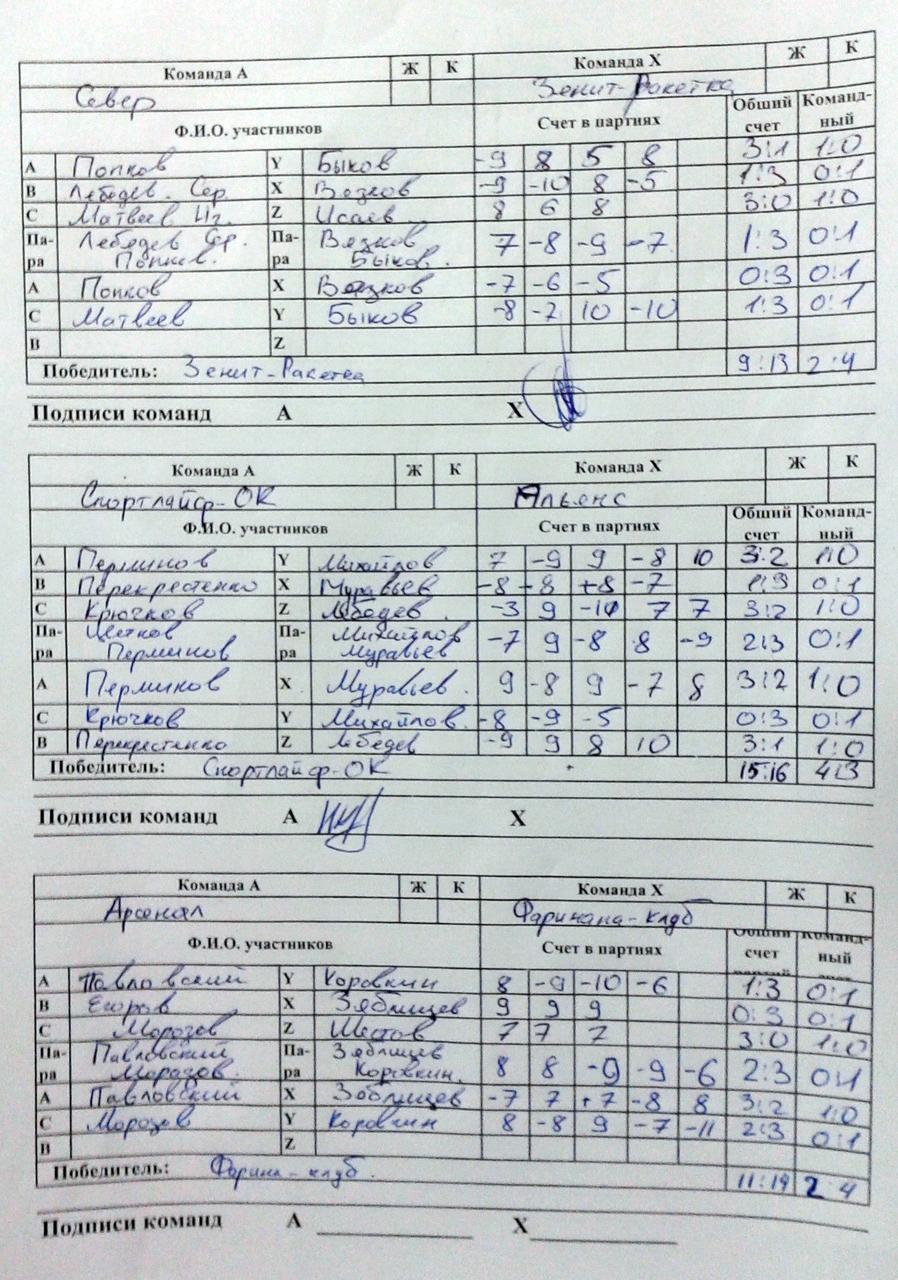 Команда А Ж К Команда Х Ж К
Север Зенит-Ракетка
Ф.И.О. участников Счет в партиях Общий счет Команд-ный
А Попков Y Быков -9 8 5 8 3:1 1:0
В Лебедев Сер. X Вязков -9 -10 8 -5 1:3 0:1
С Матвеев Иг. Z Исаев 8 6 8 3:0 1:0
Па-ра Лебедев Сер. Попков. Па-ра Вязков Быков. 7 -8 -9 -7 1:3 0:1
А Попков X Вязков -7 -6 -5 0:3 0:1
С Матвеев Y Быков -8 -7 10 -10 1:3 0:1
В Z
Победитель: Зенит-Ракетка 9:13 2:4
Подписи команд А Х
Команда А Ж К Команда Х Ж К
Спортлайф-ОК Альянс
Ф.И.О. участников Счет в партиях Общий счет Команд-ный
А Перминов Y Михайлов 7 -9 9 -8 10 3:2 1:0
В Перекрестенко X Муравьев -8 -8 +8 -7 1:3 0:1
С Крючков Z Лебедев -3 9 -10 7 7 3:2 1:0
Па-ра Цветков Перминов Па-ра Михайлов Муравьев -7 9 -8 8 -9 2:3 0:1
А Перминов X Муравьев. 9 -8 9 -7 8 3:2 1:0
С Крючков Y Михайлов. -8 -9 -5 0:3 0:1
В Перекрестенко Z Лебедев -9 9 8 10 3:1 1:0
Победитель: Спортлайф-ОК 15:16 4:3
Подписи команд А Х
Команда А Ж К Команда Х Ж К
Арсенал Фаринана-клуб
Ф.И.О. участников Счет в партиях Общий счет Команд-ный
А Павловский Y Коровкин 8 -9 -10 -6 1:3 0:1
В Егоров X Зяблицев 9 9 9 0:3 0:1
С Морозов Z Шестов 7 7 7 3:0 1:0
Па-ра Павловский Морозов. Па-ра Зяблицев Коровкин. 8 8 -9 -9 -6 2:3 0:1
А Павловский X Зяблицев -7 7 +7 -8 8 3:2 1:0
С Морозов Y Коровкин 8 -8 9 -7 -11 2:3 0:1
В Z
Победитель: Фарина-клуб. 11:14 2:4
Подписи команд А Х